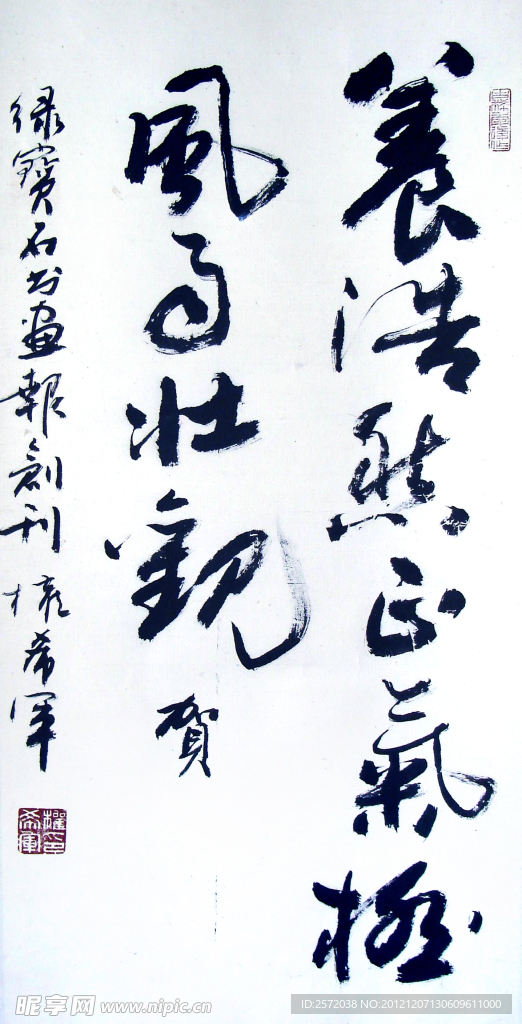 養浩然正氣極
風雲壯觀
賀
绿寶石书畫報創刊 權希軍
權希軍印
昵享网 www.nipic.cn
ID:2572038 NO:20121207130609611000